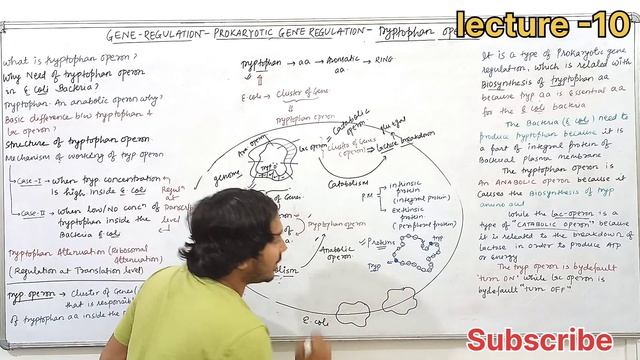 lecture -10
GENE-REGULATION-PROKARYOTIC GENE REGULATION- Tryptophan ope
what is tryptophan operon?
Why Need of tryptophan operon
in E coli Bacteria?
Tryptophan - An anabolic operon why?
Basic difference b/w tryptophan &
lac operon?
Structure of tryptophan operon
Mechanism of working of tryp operon
Case-I → when tryp concentration
is high inside E coli
Case-II → When low/No concn of
tryptophan inside the
Bacteria E coli
Regulⁿ
at
Transcription
level
Tryptophan Attenuation (Ribosomal
attenuation)
(Regulation at Translation level)
tryp operon → Cluster of Genes
that is responsi
of tryptophan aa inside the
tryptophan → aa → Aromatic → RING
aa
E-coli → Cluster of Gene
Tryptophan operon
Catabolic
operon
Lac operon
Cluster of Genes
(operon)
Lactose breakdown
genome
Catabolism
P.M
intrinsic
protein
(integral protein)
extrinsic
protein
(peripheral protein)
Tryptophan operon
Anabolic
operon
Proteins
Tryp
E. coli
It is a type of Prokaryotic gene
regulation, which is related with
Biosynthesis of tryptophan aa
because tryp aa is Essential aa
for the E coli bacteria
The Bacteria (E coli) need to
produce tryptophan because it is
a part of integral protein of
Bacterial plasma membrane
The tryptophan operon is
AN ANABOLIC operon because it
causes the Biosynthesis of tryp
amino acid
While the lac-operon is a
type of "CATABOLIC operon" because
it is related to the breakdown of
lactose in order to produce ATP
or energy
The tryp operon is bydefault
"turn ON" while lac operon is
bydefault "turn OFF"
Subscribe